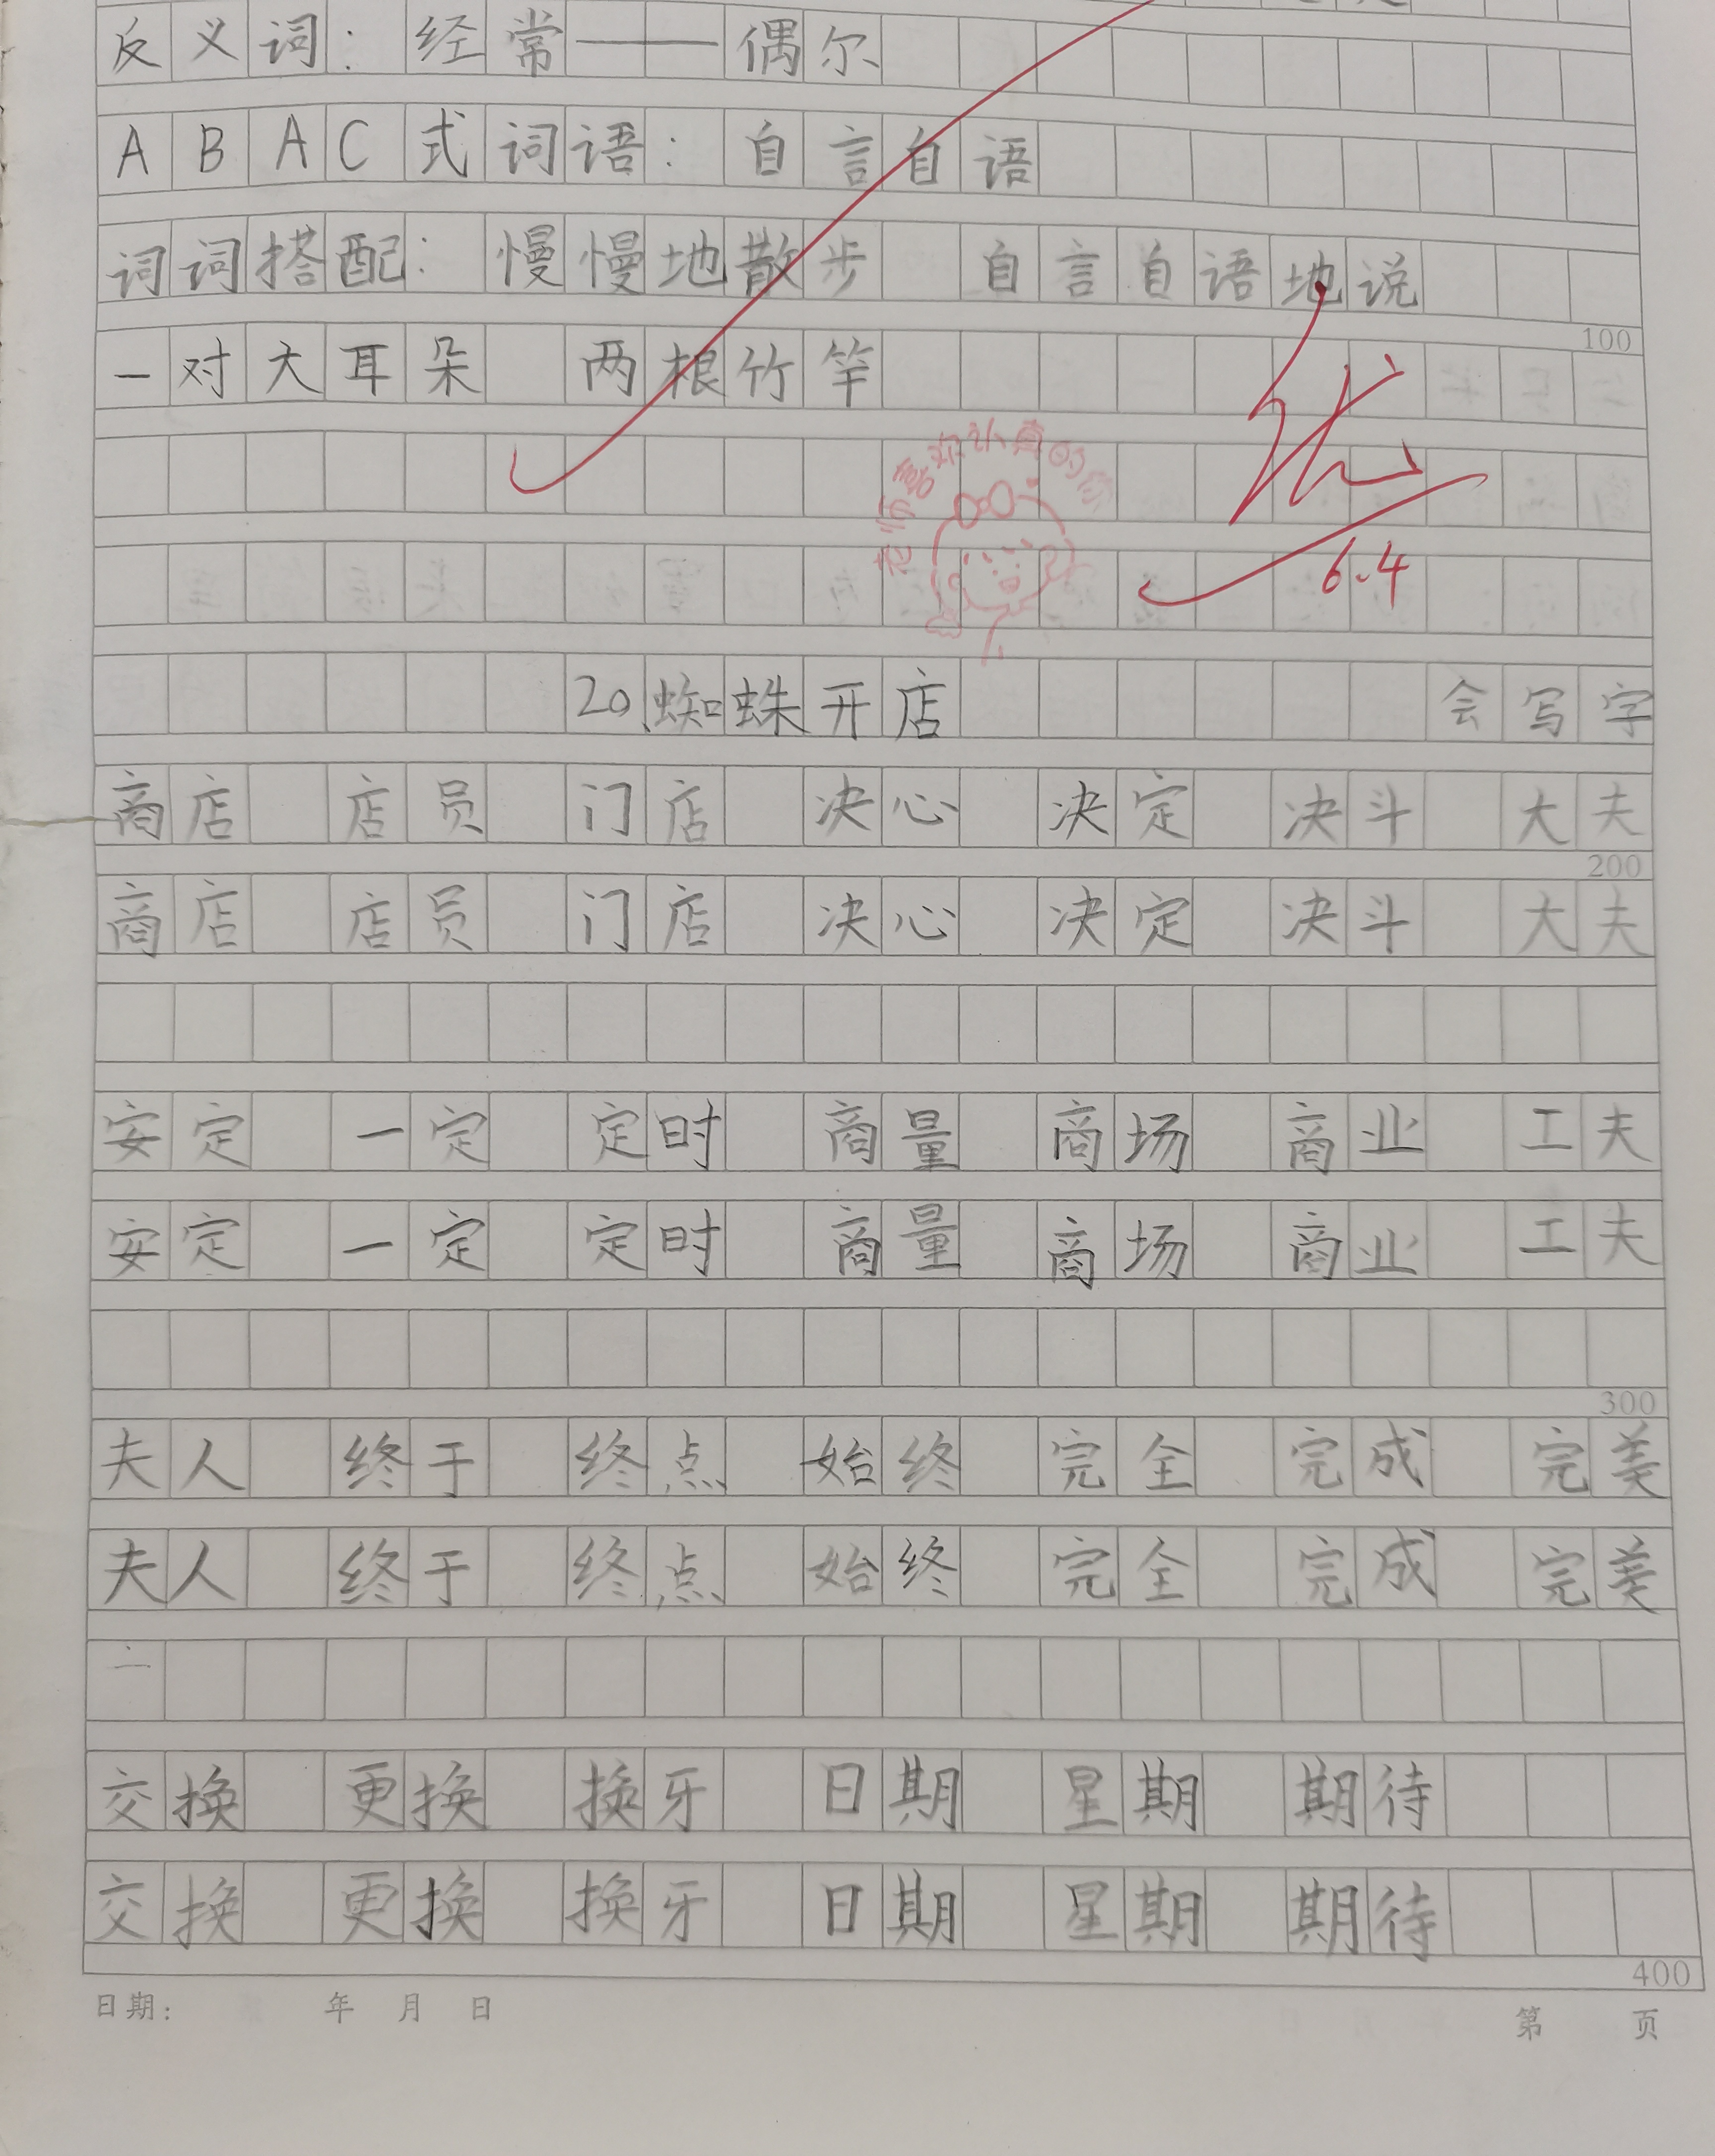 反义词：经常——偶尔
ABAC式词语：自言自语
词词搭配：慢慢地散步 自言自语地说
100
一对大耳朵 两根竹竿
老师喜欢认真的你
优
6.4
20.蜘蛛开店 会写字
商店 店员 门店 决心 决定 决斗 大夫
200
商店 店员 门店 决心 决定 决斗 大夫
安定 一定 定时 商量 商场 商业 工夫
安定 一定 定时 商量 商场 商业 工夫
300
夫人 终于 终点 始终 完全 完成 完美
夫人 终于 终点 始终 完全 完成 完美
交换 更换 换牙 日期 星期 期待
交换 更换 换牙 日期 星期 期待
400
日期： 年 月 日 第 页